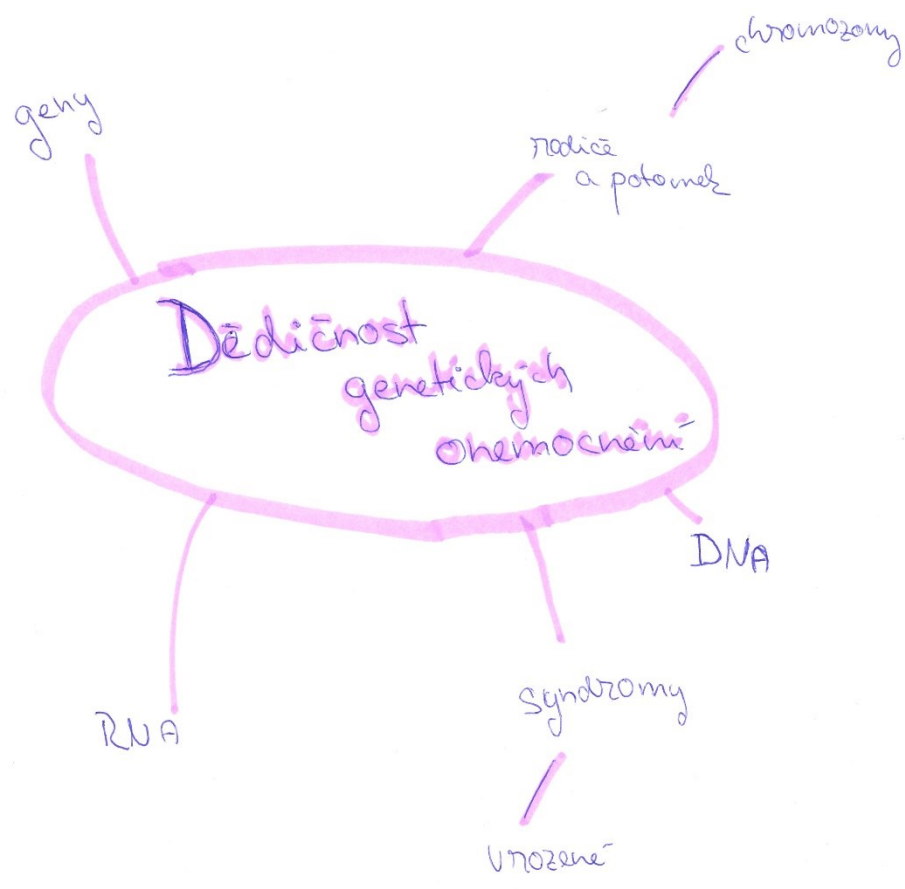 chromozomy
geny
rodiče
a potomek
Dědičnost
genetických
onemocnění
DNA
syndromy
RNA
vrozené